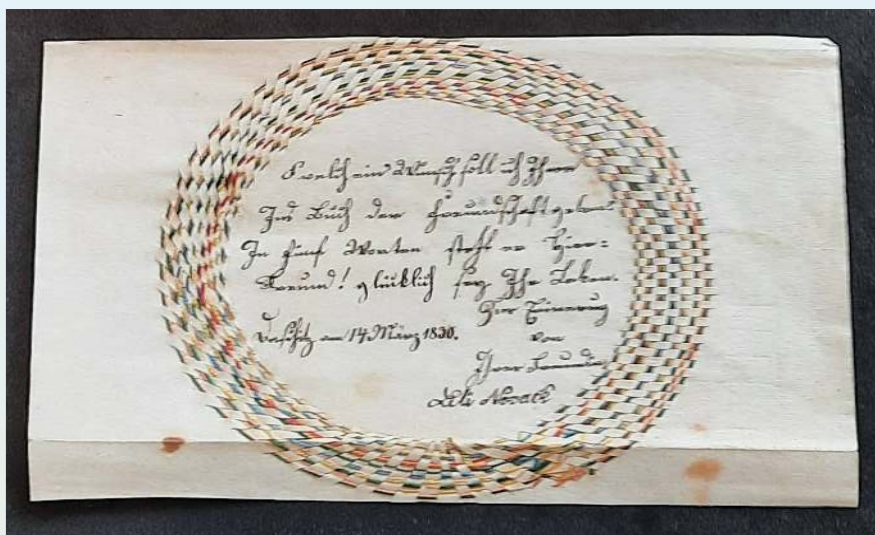 O welch ein Wunsch soll ich Ihnen
Ins Buch der Freundschaft geben
In fünf Worten steht er hier=
Freund! glücklich sey Ihr Leben.
Zur Erinnerung
am 14. März 1830.
von
Ihrer Freundin